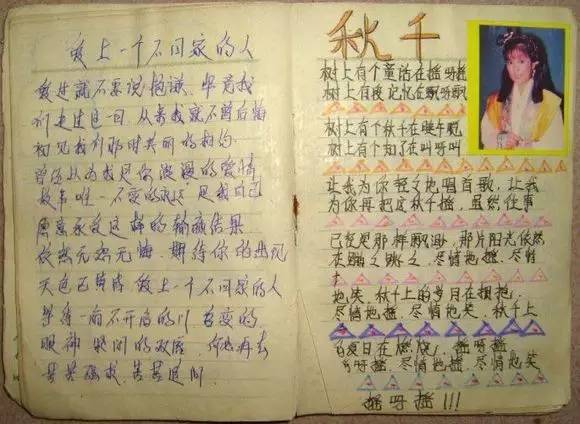 爱上一个不回家的人
爱过就不要说抱歉 毕竟我
们走过这一回 从来我就不曾后悔
初见我们那时共同的相约
曾经以为我是你浪漫的爱情
故事 唯一不变的永远 是我自己
愿意承受这样的输赢结果
依然无怨无悔 期待你的出现
天色已黄昏 爱上一个不回家的人
等待一扇不开启的门 善变的
眼神 紧闭的双唇 何必再去
苦苦强求 苦苦追问
秋千
树上有个童话在摇呀摇
树上有段记忆在飘呀飘
树上有个秋千在睡午觉
树上有个知了在叫呀叫
让我为你轻轻地唱首歌，让我
为你再把这秋千摇，虽然往事
已是那样飘渺，那片阳光依然
在跳跳，尽情地摇，尽情
地笑，秋千上的岁月在拥抱，
尽情地摇，尽情地笑，秋千上
的夏日在燃烧，摇呀摇
呀摇，尽情地摇，尽情地笑
摇呀摇!!!